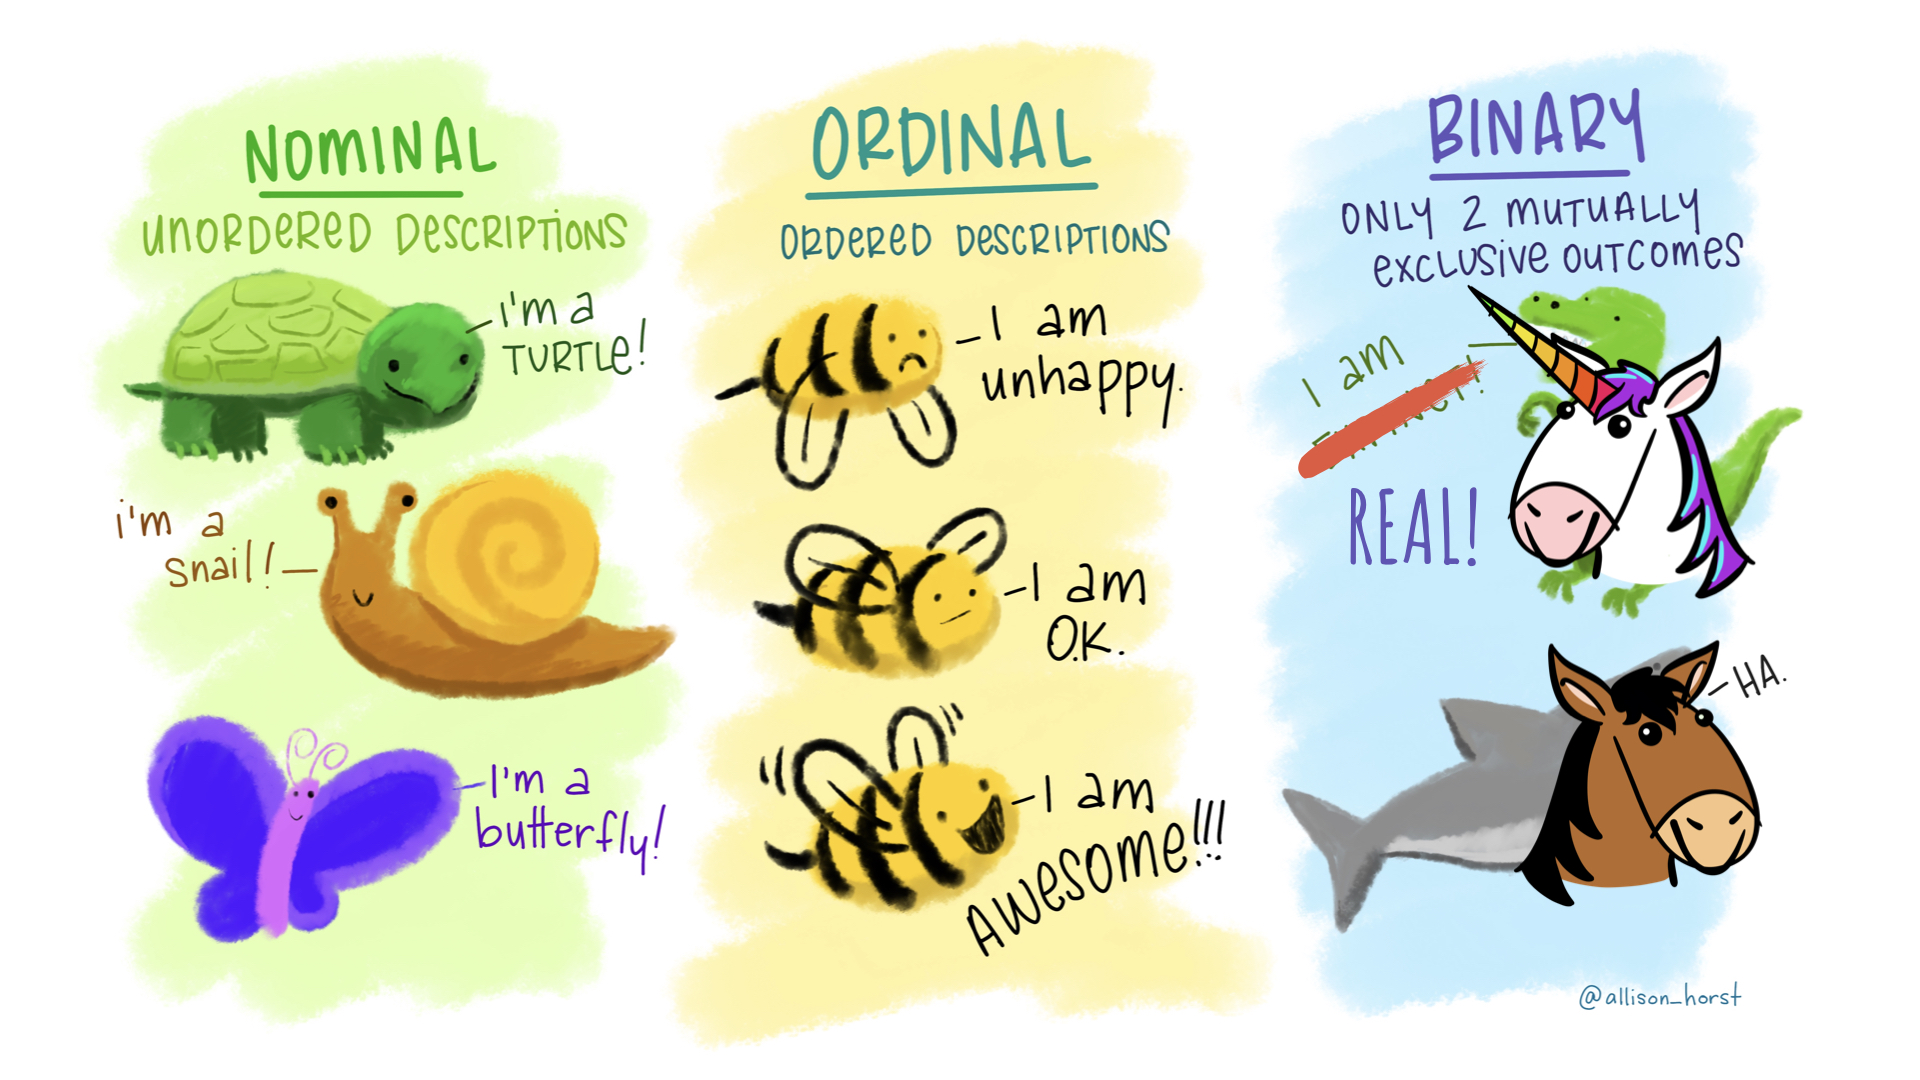 NOMINAL
UNORDERED DESCRIPTIONS
i'm a
TURTLE!
i'm a
snail!
I'm a
butterfly!
ORDINAL
ORDERED DESCRIPTIONS
I am
unhappy.
I am
O.K.
I am
AWESOME!!!
BINARY
ONLY 2 MUTUALLY
EXCLUSIVE OUTCOMES
I am
REAL!
HA.
@allison_horst